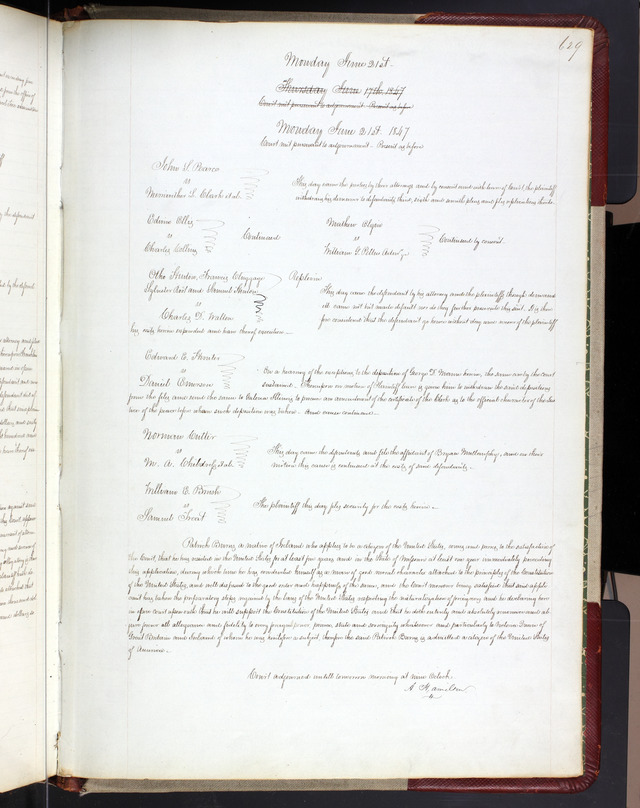 629
Monday June 21st
Thursday June 17th 1847
Court met pursuant to adjournment Present as before
Monday June 21st 1847
Court met pursuant to adjournment Present as before
John S. Pearce
vs
L. Clark et al.
This day came the parties by their attorneys and by consent and with leave of Court the plaintiff
withdraws his demurrer to defendants third, sixth and seventh pleas and files replications thereto
Edwin Ellis
vs
Charles Collins
Continued
Mathew
vs
William G. Pettus
Continued by consent
Otho Hinton, Francis
Sylvester and Samuel Hinton
vs
Charles D. Walton
Replevin
This day came the defendant by his attorney and the plaintiffs though demanded
came not but made default nor do they further prosecute this suit. It is there
fore considered that the defendant go hence without day and recover of the plaintiffs
his costs herein expended and have thereof execution
Edward E. Hunter
vs
Daniel Emerson
On a hearing of the exceptions to the deposition of George D. herein, the same are by the court
sustained. Thereupon on motion of Plaintiff leave is given him to withdraw the said depositions
from the files and send the same to to procure an amendment of the certificate of the Clerk as to the official character of the Jus
tice of the peace before whom such deposition was taken. And cause continued
Norman Cutter
vs
M. A. et al.
This day came the defendants and file the affidavit of Bryan Mullanphy, and on their
motion this cause is continued at the costs of said defendants.
William E. Brush
vs
Samuel Treat
The plaintiff this day files security for the costs herein
Patrick Burns a native of Ireland who applies to be a citizen of the United States, comes and proves to the satisfaction of
the Court, that he has resided in the United States for at least five years and in the State of Missouri at least one year immediately preceding
this application, during which time he has conducted himself as a man of good moral character attached to the principles of the Constitution
of the United States, and well disposed to the good order and happiness of the same, and the Court moreover being satisfied that said appli
cant has taken the preparatory steps required by the laws of the United States respecting the naturalization of foreigners and he declaring here
in open Court upon oath that he will support the Constitution of the United States and that he doth entirely and absolutely renounce and ab
jure forever all allegiance and fidelity to every foreign prince, power, state and sovereignty whatsoever and particularly to Victoria Queen of
Great Britain and Ireland of whom he was heretofore a subject, therefore the said Patrick Burns is admitted a citizen of the United States
of America.
Court adjourned until tomorrow morning at nine Oclock
A Hamilton